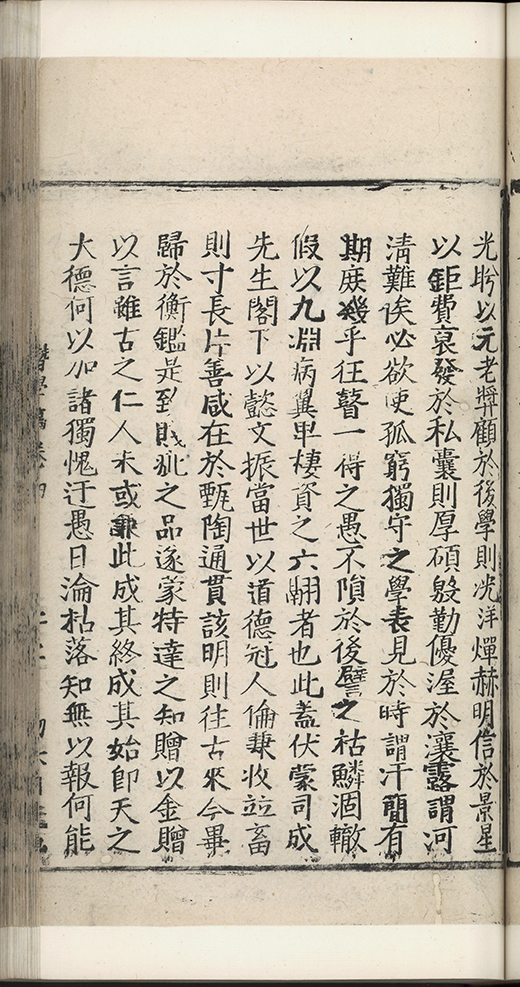 光盻以元老獎顧於後學則洸洋燀赫明信於景星
以鉅費裒發於私囊則厚碩殷勤優渥於瀼露謂河
清難俟必欲使孤窮獨守之學表見於時謂汗簡有
期庻㡬乎狂瞽一得之愚不隕於後譬之枯鱗涸轍
假以九淵病翼卑棲資之六翮者也此盖伏蒙司成
先生閣下以懿文振當世以道德冠人倫兼收並畜
則寸長片善咸在於甄陶通貫該明則往古來今畢
歸於衡鑑是致賎玼之品遂蒙特達之知贈以金贈
以言雖古之仁人未或兼此成其終成其始即天之
大德何以加諸獨愧迂愚日淪枯落知無以報何能